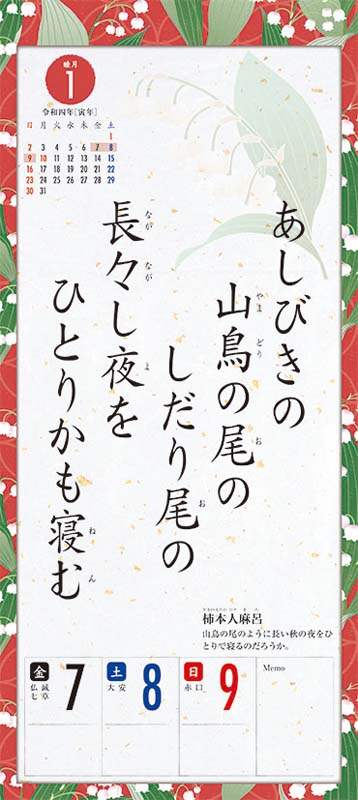 睦月
1
令和四年[寅年]
日 月 火 水 木 金 土
1
2 3 4 5 6 7 8
9 10 11 12 13 14 15
16 17 18 19 20 21 22
23 24 25 26 27 28 29
30 31
あしびきの
山鳥の尾の
やま どり お
しだり尾の
お
長々し夜を
なが なが よ
ひとりかも寝む
ねん
柿本人麻呂
山鳥の尾のように長い秋の夜をひ
とりで寝るのだろうか。
金 仏滅 七草 7
土 大安 8
日 赤口 9
Memo